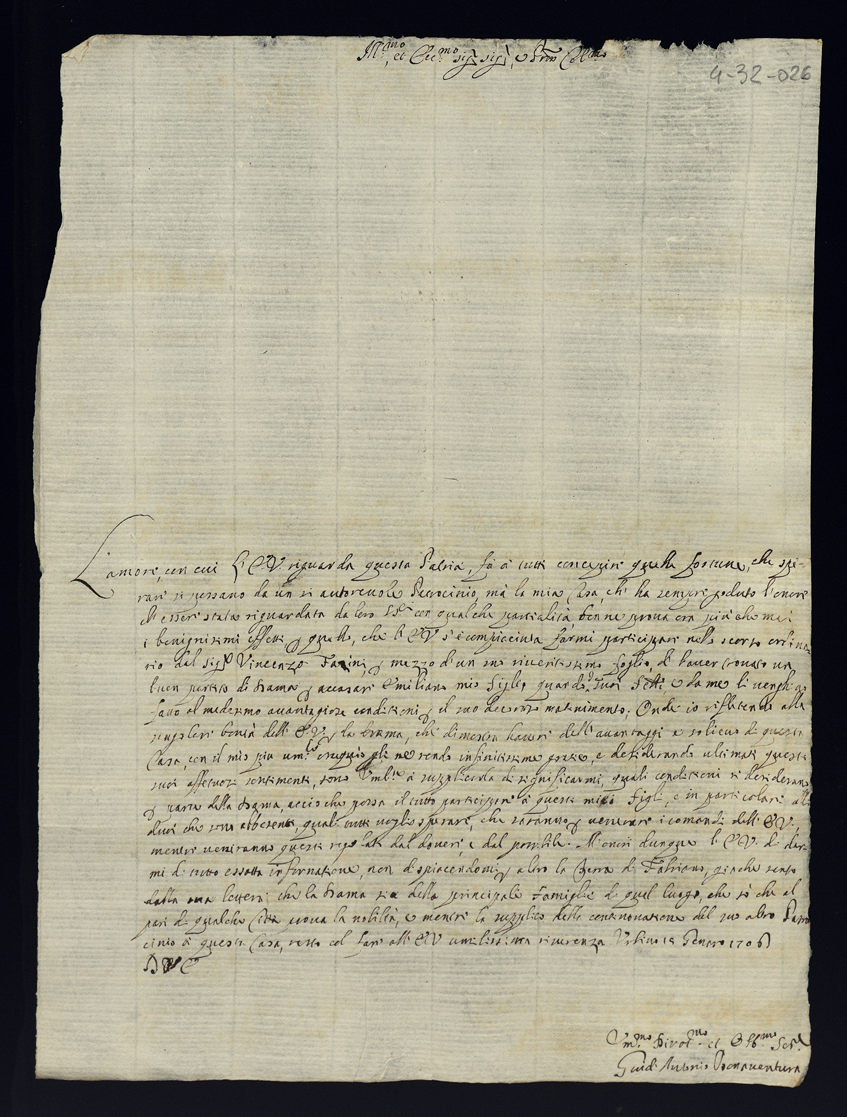 Ill.mo et Ecc.mo sig.r sig.r, e Pron Col.mo
4-32-026
L'amore, con cui l'E.V. riguarda questa Patria, fà à tutti concepire quelle fortune, che spe-
rare si possano da un si autorevole Patrocinio, mà la mia Casa, ch' ha sempre goduto l'onore
d'esser stata riguardata da loro con qualche partialità ben ne prova ora più che mai
i benignissimi effetti per quello, che l'E.V. s'è compiaciuta farmi participare nello scorso ordina-
rio dal sig.r Vincenzo Fazini, per mezzo d'un suo riveritissimo foglio, di haver trovato un
buon partito di Dama per accasare Emiliano mio figlio, quando suoi, e da me li venghino
fatte el medesmo avantagiose conditioni per il suo decoroso mantenimento; Onde io riflettendo alla
singolare bontà dell' E.V., per la brama, che dimostra havere dell' avantaggi e solievo di questa
Casa, con il mio più um.le ossequio gliene rendo infinitissime grazie, e desiderando ultimati questi
suoi affettuosi sentimenti, sono à supplicarla di significarmi, quali conditioni si desiderano
per parte della Dama, acciò che possa il tutto participare à questi miei Figli, e in particolare alli
due che sono absenti, quali tutti voglio sperare, che saranno per venerare i comandi dell' E.V.,
mentre veniranno questi regolati dal dovere, e dal possibile. Honori dunque l'E.V. di dar-
mi di tutto essatta informatione, non dispiacendomi per altro la Terra di Fabriano, giache sento
dalla sua lettera, che la Dama sia delle principali Famiglie di quel luogo, che sò che al
pari di qualche Città prova la nobiltà, e mentre la supplico della continovatione del suo alto Patro-
cinio à questa Casa, resto col fare all' E.V. umilissima riverenza Urbino 18 Genaro 1706
D V E
Um.mo Divot.mo et Obl.mo Ser.
Guid' Antonio Bonaventura